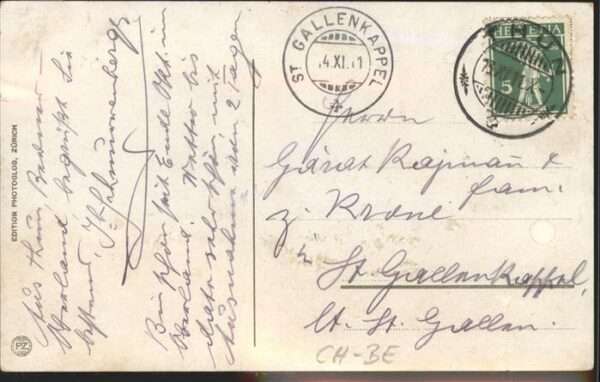 EDITION PHOTOGLOB, ZÜRICH
PZ
Aus Thun, Berner-
Oberland, begrüsst Sie
bestens
Bin hier seit Ende Okt. im
Oberland. Wetter bis
dato sehr schön, mit
Ausnahme von 2 Tagen.
ST GALLENKAPPEL
14.XI.11
HELVETIA
5
THUN
Herrn
Gärat Rajman &
fam.
z. Krone
St. Gallenkappel,
Kt. St. Gallen.
CH-BE